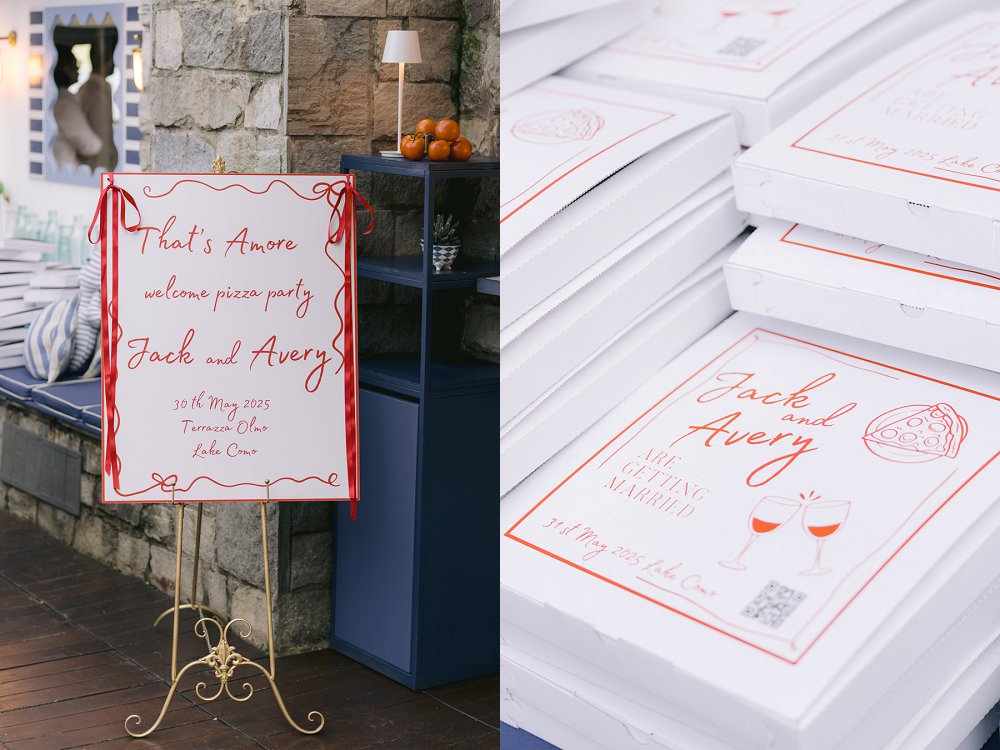 That's Amore
welcome pizza party
Jack and Avery
30 th May 2025
Terrazza Olmo
Lake Como
ARE
GETTING
MARRIED
31st May 2025 Lake Como
Jack
and
Avery
ARE
GETTING
MARRIED
31st May 2025 Lake Como